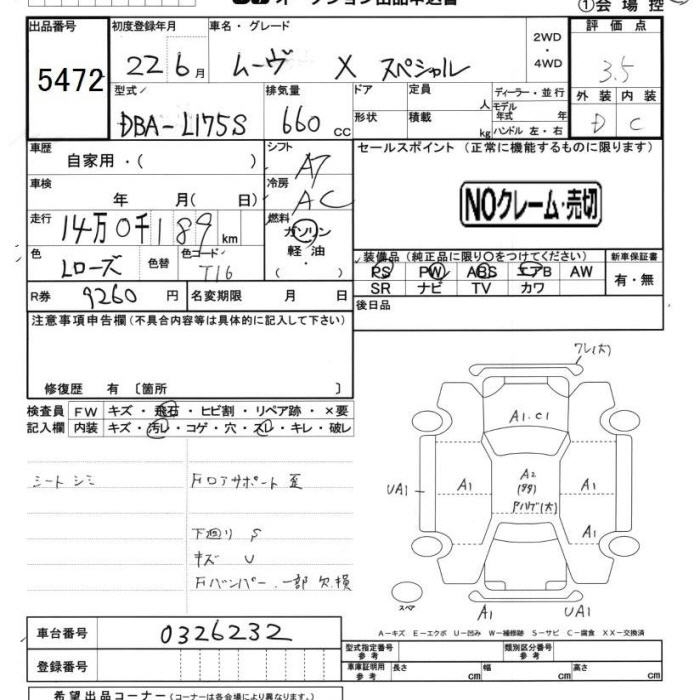 オークション出品申込書
①会場控
出品番号 5472
初度登録年月 22 6月
車名・グレード ムーヴ X スペシャル
2WD
・
4WD
評価点 3.5
外装 内装
D C
型式 DBA-L175S
排気量 660 cc
ドア 形状
定員 人
積載 kg
ディーラー・並行
モデル年式 年
ハンドル 左・右
車歴 自家用・( )
シフト AT
セールスポイント (正常に機能するものに限ります)
NOクレーム・売切
車検 年 月( 日)
冷房 AC
走行 14万0千189 km
燃料 ガソリン
軽油
( ・ )
色 Lローズ
色替
色コード T16
装備品 (純正品に限り○をつけてください)
PS PW ABS エアB AW
SR ナビ TV カワ
新車保証書
有・無
R券 9260 円
名変期限 月 日
後日品
注意事項申告欄 (不具合内容等は具体的に記入して下さい)
修復歴 有 〔箇所 〕
検査員 FW キズ・飛石・ヒビ割・リペア跡・×要
記入欄 内装 キズ・汚レ・コゲ・穴・スレ・キレ・破レ
シート シミ
Fロアサポート 歪
下廻り S
キズ U
Fバンパー 一部 欠損
ワレ(大)
A1.C1
UA1
A1
A2
A1
A1
スペア
A1
UA1
A-キズ E-エクボ U-凹み W-補修跡 S-サビ C-腐食 XX-交換済
車台番号 0326232
登録番号
型式指定番号 参考
類別区分番号 参考
車庫証明用 参考
長さ cm
幅 cm
高さ cm
希望出品コーナー (コーナーは各会場により異なります。)